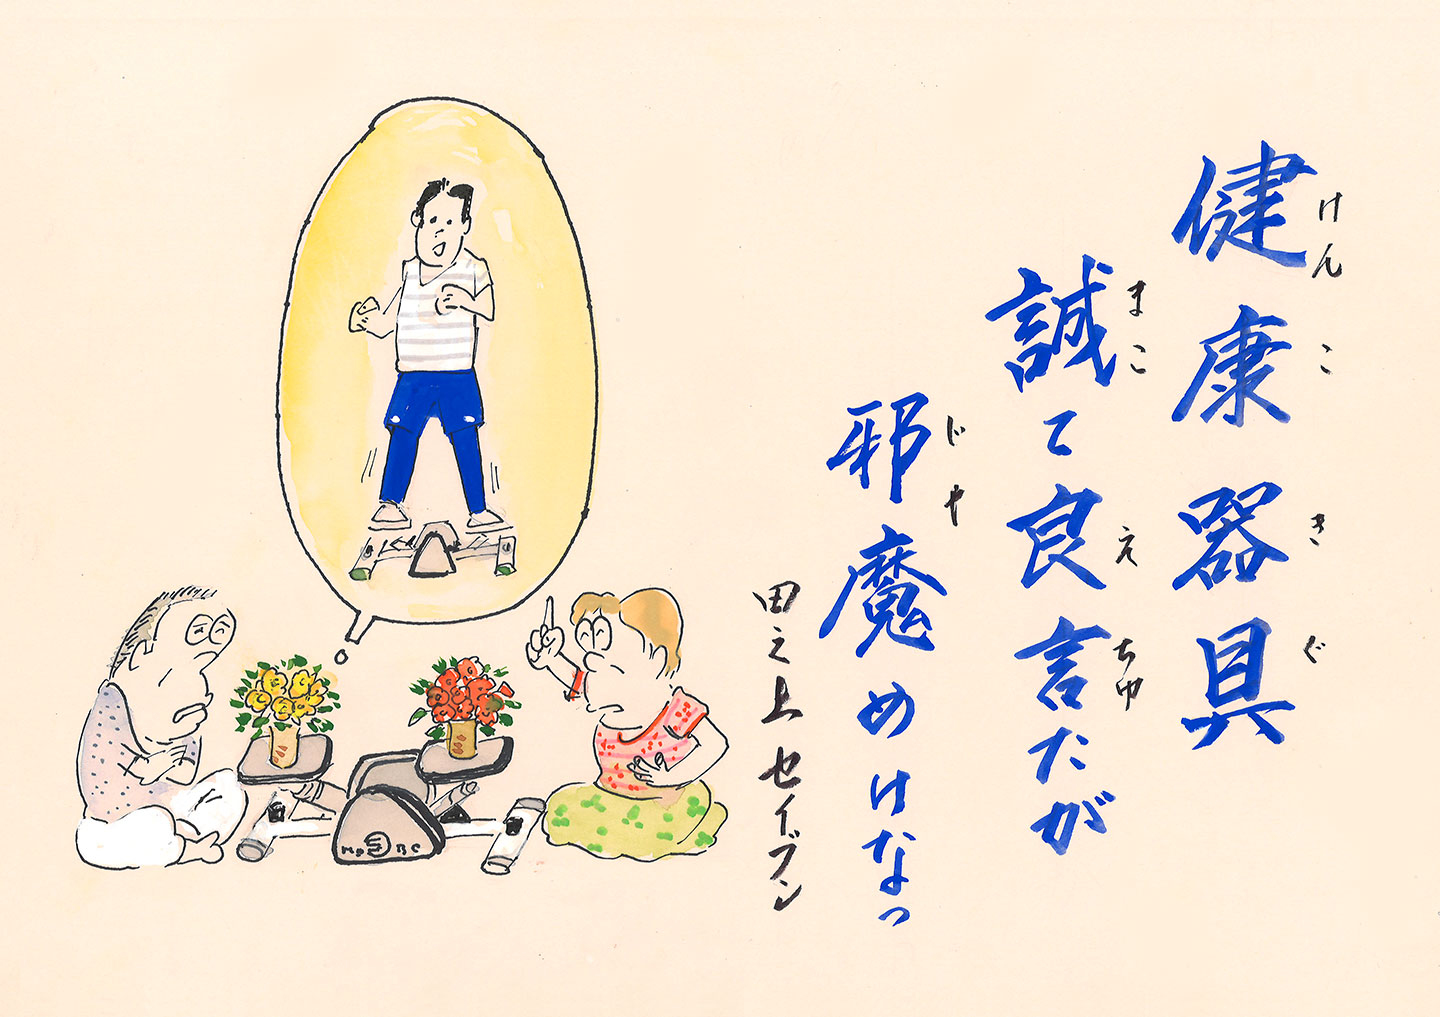 健康器具
けんこきぐ
誠て良言たが
まこえちゅ
邪魔めけなっ
じゃ
田之上セイブン